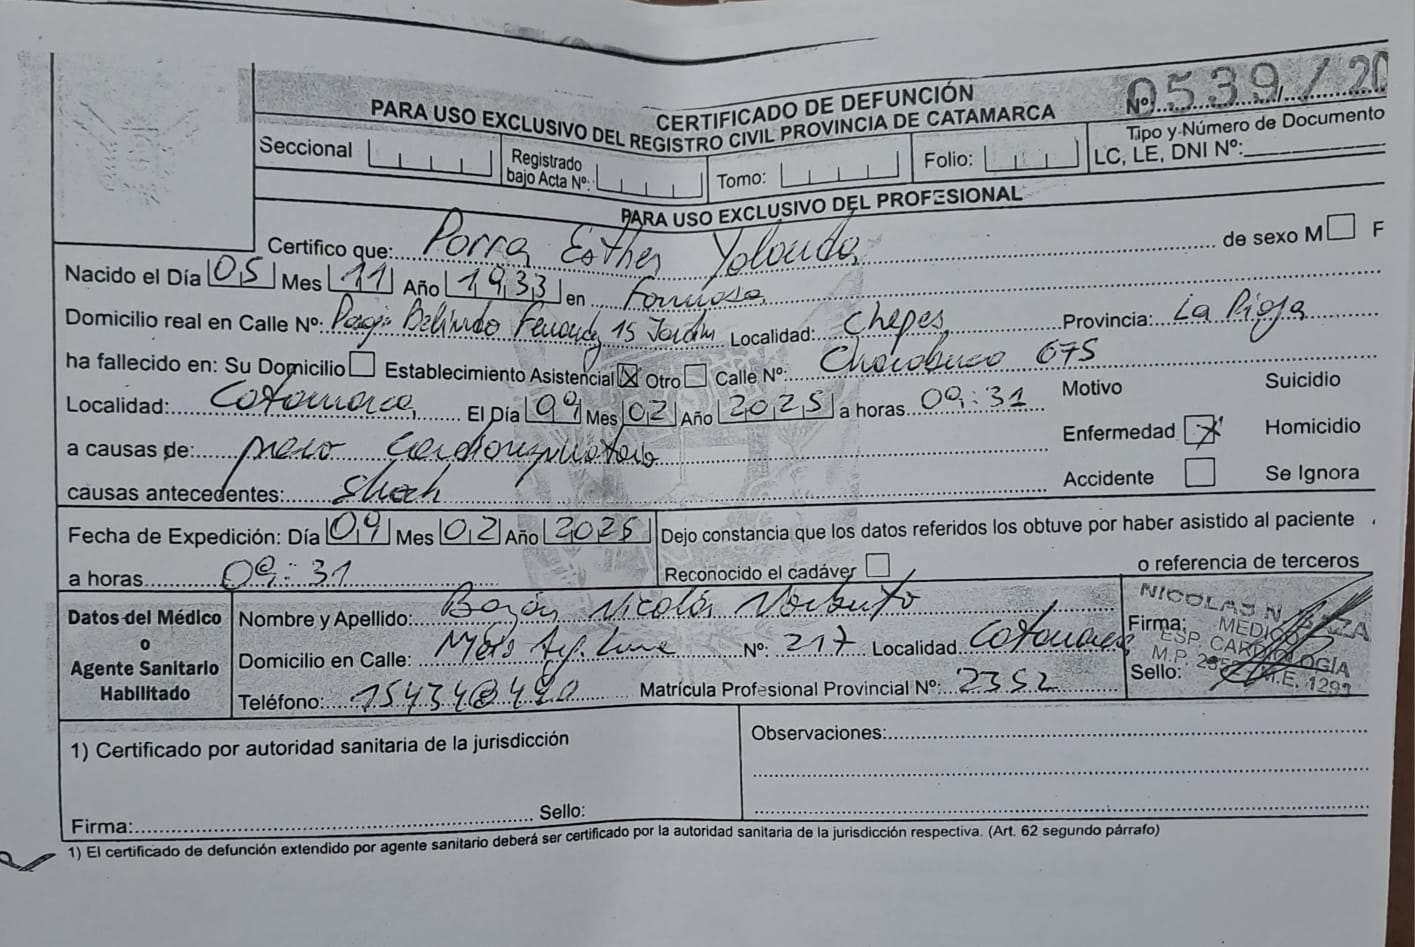 CERTIFICADO DE DEFUNCIÓN
Nº 0539/20
PARA USO EXCLUSIVO DEL REGISTRO CIVIL PROVINCIA DE CATAMARCA
Tipo y Número de Documento
Seccional Registrado bajo Acta Nº: Tomo: Folio: LC, LE, DNI Nº:
PARA USO EXCLUSIVO DEL PROFESIONAL
Certifico que: Porra Esther Yolanda de sexo M F
Nacido el Día 05 Mes 11 Año 1933 en Formosa
Domicilio real en Calle Nº: 15 Localidad: Chepes Provincia: La Rioja
ha fallecido en: Su Domicilio Establecimiento Asistencial X Otro Calle Nº: Chacabuco 675
Localidad: Catamarca El Día 09 Mes 02 Año 2025 a horas 09:31 Motivo Suicidio
a causas de: paro cardiorespiratorio Enfermedad X Homicidio
causas antecedentes: Shock Accidente Se Ignora
Fecha de Expedición: Día 09 Mes 02 Año 2025 Dejo constancia que los datos referidos los obtuve por haber asistido al paciente
a horas 09:31 Reconocido el cadáver o referencia de terceros
Datos del Médico o Agente Sanitario Habilitado
Nombre y Apellido: Nicolás Norberto
Domicilio en Calle: Nº: 217 Localidad Catamarca
Teléfono: Matrícula Profesional Provincial Nº: 2352
Firma:
Sello:
NICOLAS N.
MEDICO
ESP. CARDIOLOGIA
1) Certificado por autoridad sanitaria de la jurisdicción
Observaciones:
Firma: Sello:
1) El certificado de defunción extendido por agente sanitario deberá ser certificado por la autoridad sanitaria de la jurisdicción respectiva. (Art. 62 segundo párrafo)